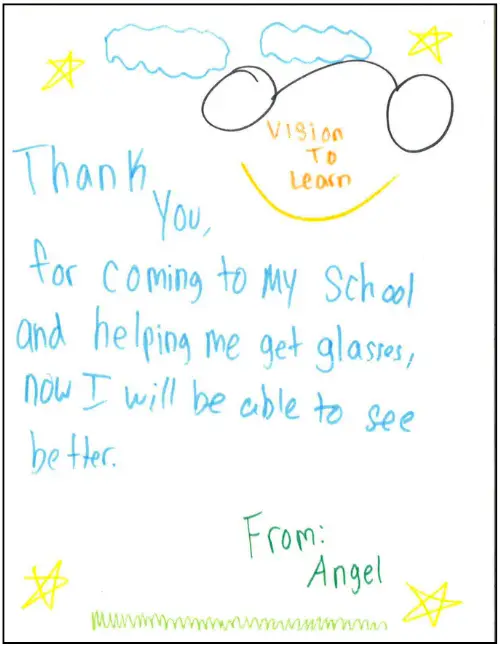 Vision
To
Learn
Thank
You,
for coming to My School
and helping me get glasses,
now I will be able to see
better.
From:
Angel